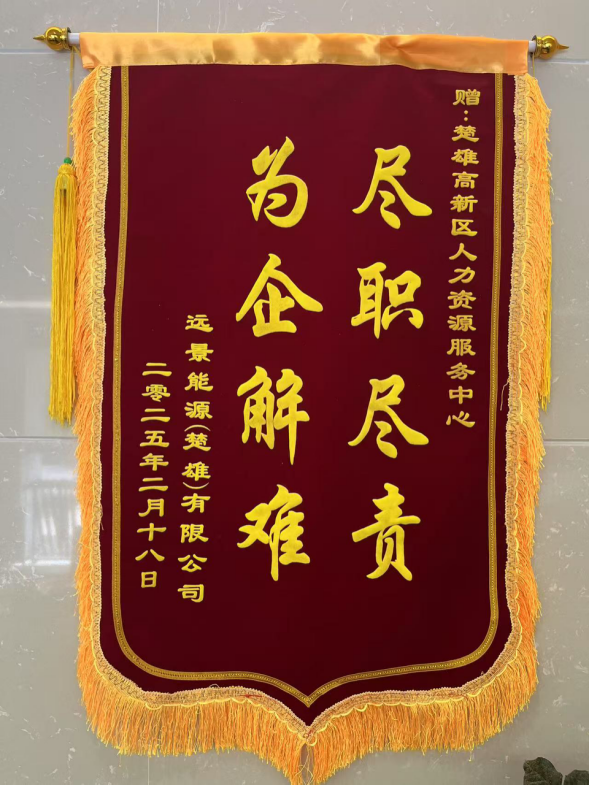 赠:楚雄高新区人力资源服务中心
尽职尽责
为企解难
远景能源(楚雄)有限公司
二零二五年二月十八日